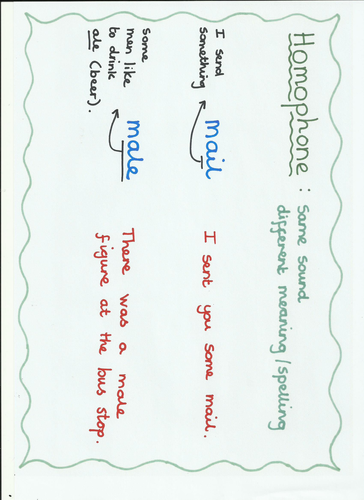 Homophone : same sound
different meaning/spelling
I send
something
mail
I sent you some mail.
some
men like
to drink
ale (beer).
male
There was a male
figure at the bus stop.